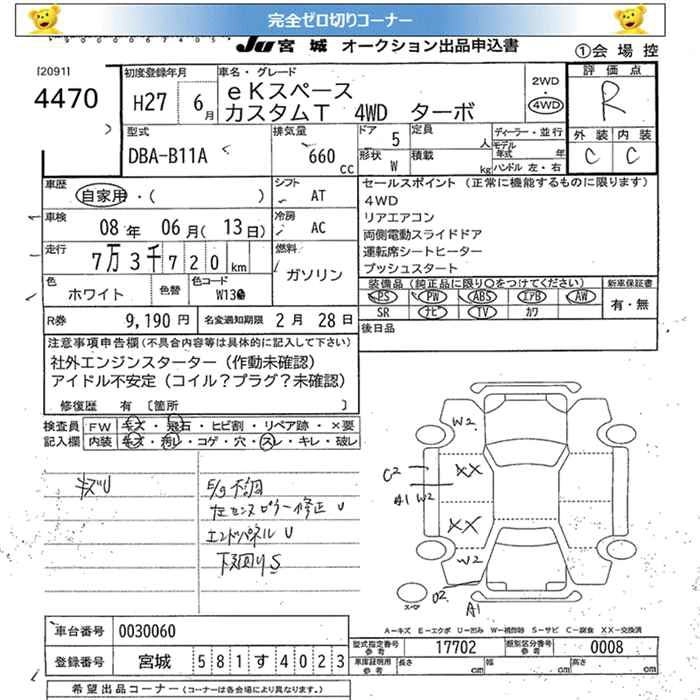 完全ゼロ切りコーナー
JU 宮城 オークション出品申込書
①会場控
[2091]
4470
初度登録年月
H27 6月
車名・グレード
eKスペース
カスタムT 4WD ターボ
2WD
・
4WD
評価点
R
外装 内装
C C
型式
DBA-B11A
排気量
660 cc
ドア 5
定員 人
形状 W
積載 kg
ディーラー・並行
モデル年式 年
ハンドル 左・右
車歴
自家用・( )
シフト
AT
車検
08年 06月(13日)
冷房
AC
走行
7万3千720km
燃料
ガソリン
色
ホワイト
色替
色コード
W13
セールスポイント (正常に機能するものに限ります)
4WD
リアエアコン
両側電動スライドドア
運転席シートヒーター
プッシュスタート
装備品(純正品に限り○をつけてください)
PS PW ABS エアB AW
SR ナビ TV カワ
新車保証書
有・無
R券 9,190円
名変通知期限 2月28日
後日品
注意事項申告欄(不具合内容等は具体的に記入して下さい)
社外エンジンスターター(作動未確認)
アイドル不安定(コイル?プラグ?未確認)
修復歴 有 〔箇所 〕
検査員 FW キズ・飛石・ヒビ割・リペア跡・×要
記入欄 内装 キズ・汚レ・コゲ・穴・スレ・キレ・破レ
キズU
E/g不調
左センスピラー修正 U
エンドパネル U
下廻りS
W2
XX
C2
A1 W2
XX
W2
U2
A1
A-キズ E-エクボ U-凹み W-補修跡 S-サビ C-腐食 XX-交換済
車台番号 0030060
登録番号 宮城 581す4023
型式指定番号 参考 17702
類別区分番号 参考 0008
車庫証明用 参考 長さ cm 幅 cm 高さ cm
希望出品コーナー(コーナーは各会場により異なります。)